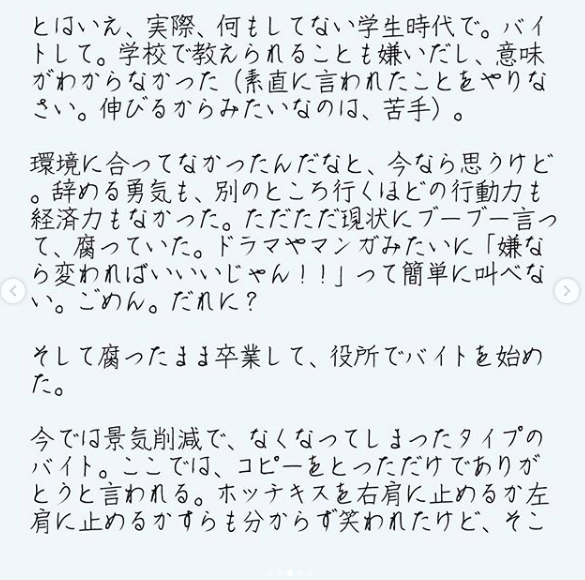 とはいえ、実際、何もしてない学生時代で。バイ
トして。学校で教えられることも嫌いだし、意味
がわからなかった（素直に言われたことをやりな
さい。伸びるからみたいなのは、苦手）。
環境に合ってなかったんだなと、今なら思うけど
。辞める勇気も、別のところ行くほどの行動力も
経済力もなかった。ただただ現状にブーブー言っ
て、腐っていた。ドラマやマンガみたいに「嫌な
ら変わればいいいじゃん！！」って簡単に叫べな
い。ごめん。だれに？
そして腐ったまま卒業して、役所でバイトを始め
た。
今では景気削減で、なくなってしまったタイプの
バイト。ここでは、コピーをとっただけでありが
とうと言われる。ホッチキスを右肩に止めるか左
肩に止めるかすらも分からず笑われたけど、そこ